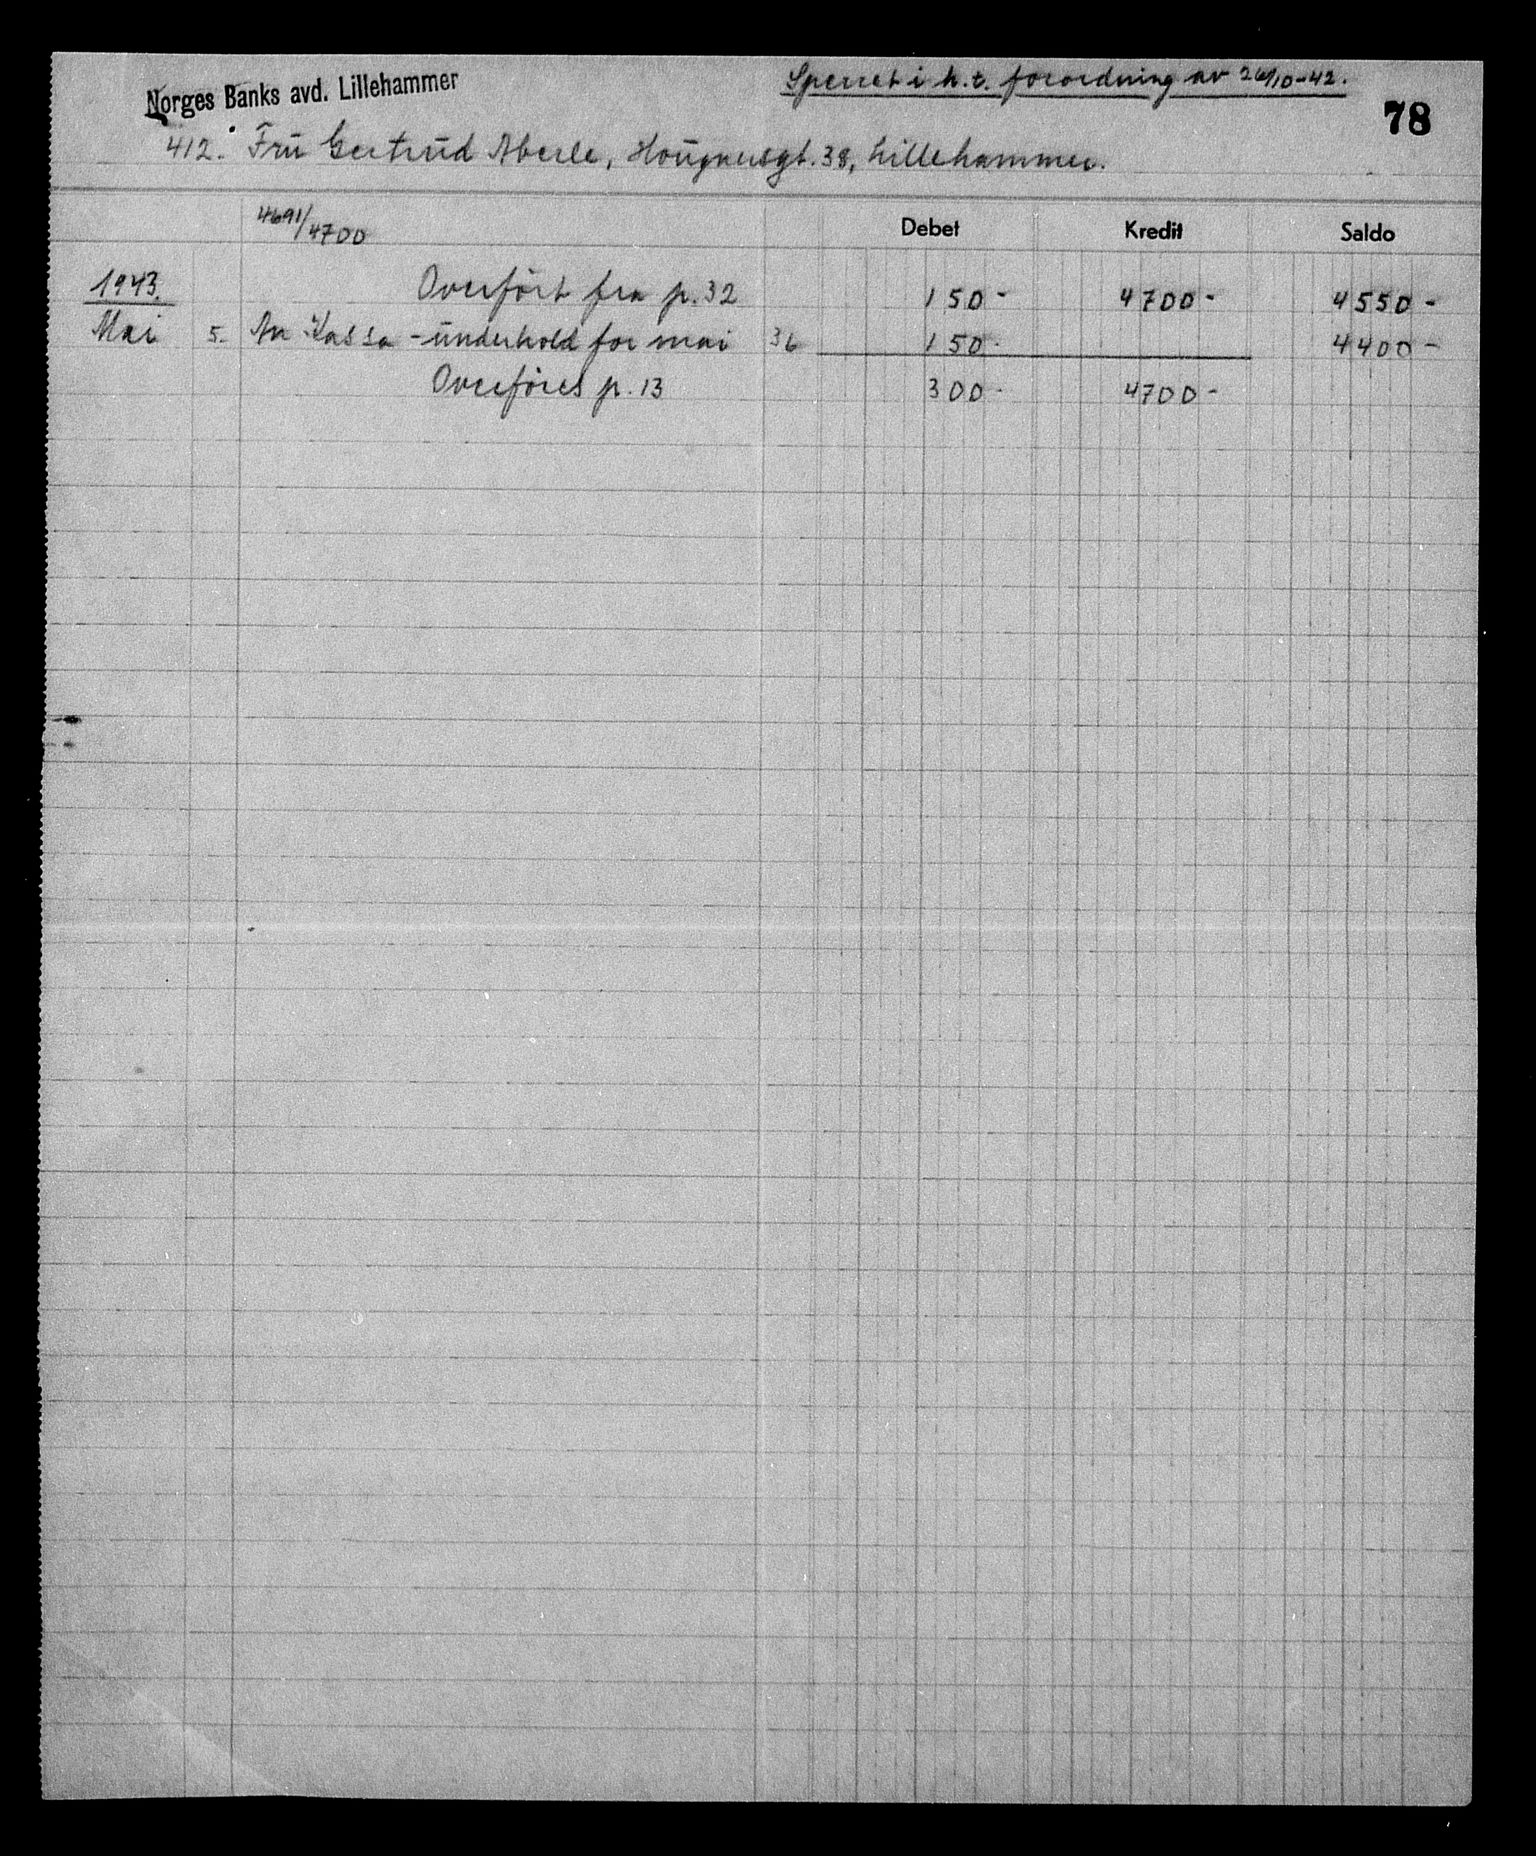 Norges Banks avd. Lillehammer
Sperret i h.t. forordning av 26/10-42.
78
412. Frü Gertrüd Aberle, Hougnersgt. 38, Lillehammer.
4691/4700 Debet Kredit Saldo
1943. Overført fra p. 32 150- 4700- 4550-
Mai 5. An Kassa - ünderhold for mai 36 150- 4400-
Overføres p. 13 300- 4700-